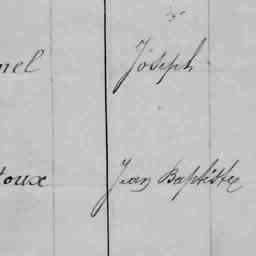 nel Joseph
toux Jean Baptiste